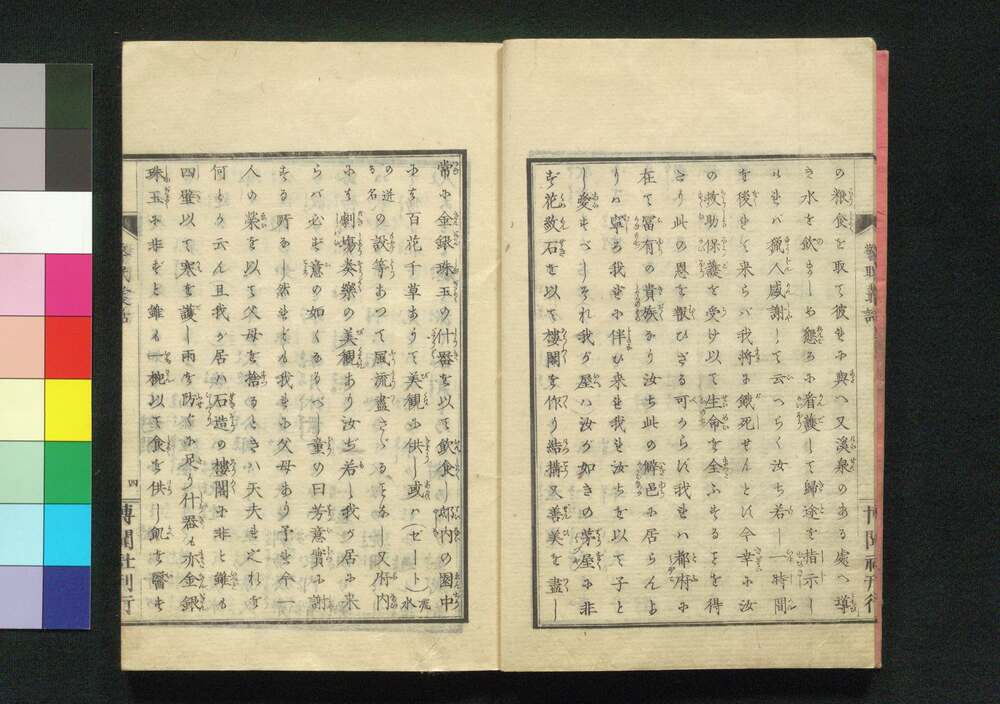 の粮食を取て彼せに與へ又溪泉のある處へ導
き水を飲まーめ懇ろに看護して歸途を指示し
けせバ獵人感謝して云つらく汝ち若し一時間
を後せて来らバ我將に餓死せんとに今幸に汝
の救助保護を受け以て生命を全ふせるとを得
たり此の恩を報ひざる可からに我せハ都府に
在て冨有の貴族なり汝ち此の僻邑に居らんよ
りハ寧ろ我せに伴ひ来せ我せ汝ちを以て子と
し愛せべしそれ我が屋ハ汝が如きの茅屋に非
ず花散石を以て樓閣を作り結搆又善美を盡し
常に金銀珠玉の什器を以て飲食し邸内の園中
にも百花千草ありて美観に供し或ハ(ゼート水
の迸
る名
の設等あつて風流盡さゞるとなし又府内
にも劇塲奏樂の美観あり汝ぢ若し我が居に来
らバ必ず意の如くなるべし 童の曰芳意實に謝
する所なし然せども我せに父母あり予せ今一
人の榮を以て父母を捨るときハ天夫せ之れを
何とか云ん且我が居ハ石造の樓閣に非と雖も
四壁以て寒を護し雨を防くに足り什器も亦金銀
珠玉に非ずと雖も一椀以て食を供し飢を醫せ
四
博聞社刊行